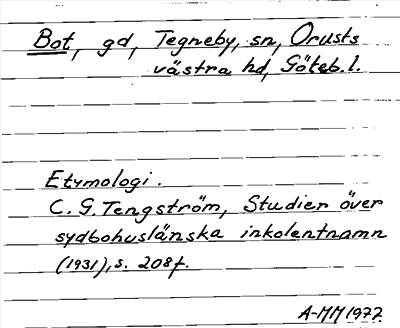 Bot, gd, Tegneby, sn, Orusts
västra hd, Göteb.l.
Etymologi.
C. G. Tengström, Studier över
sydbohuslänska inkolentnamn
(1931), s. 208f.
A-MM 1977.